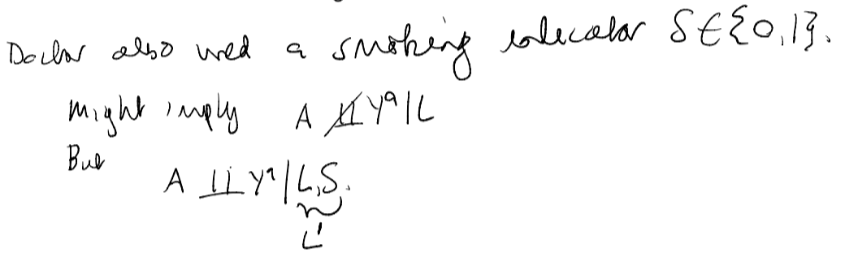 Doctor also used a smoking indicator S∈{0,1}.
Might imply A ⊥̸⊥ Yᵃ|L
But
A ⊥⊥ Yᵃ|L,S.
L'